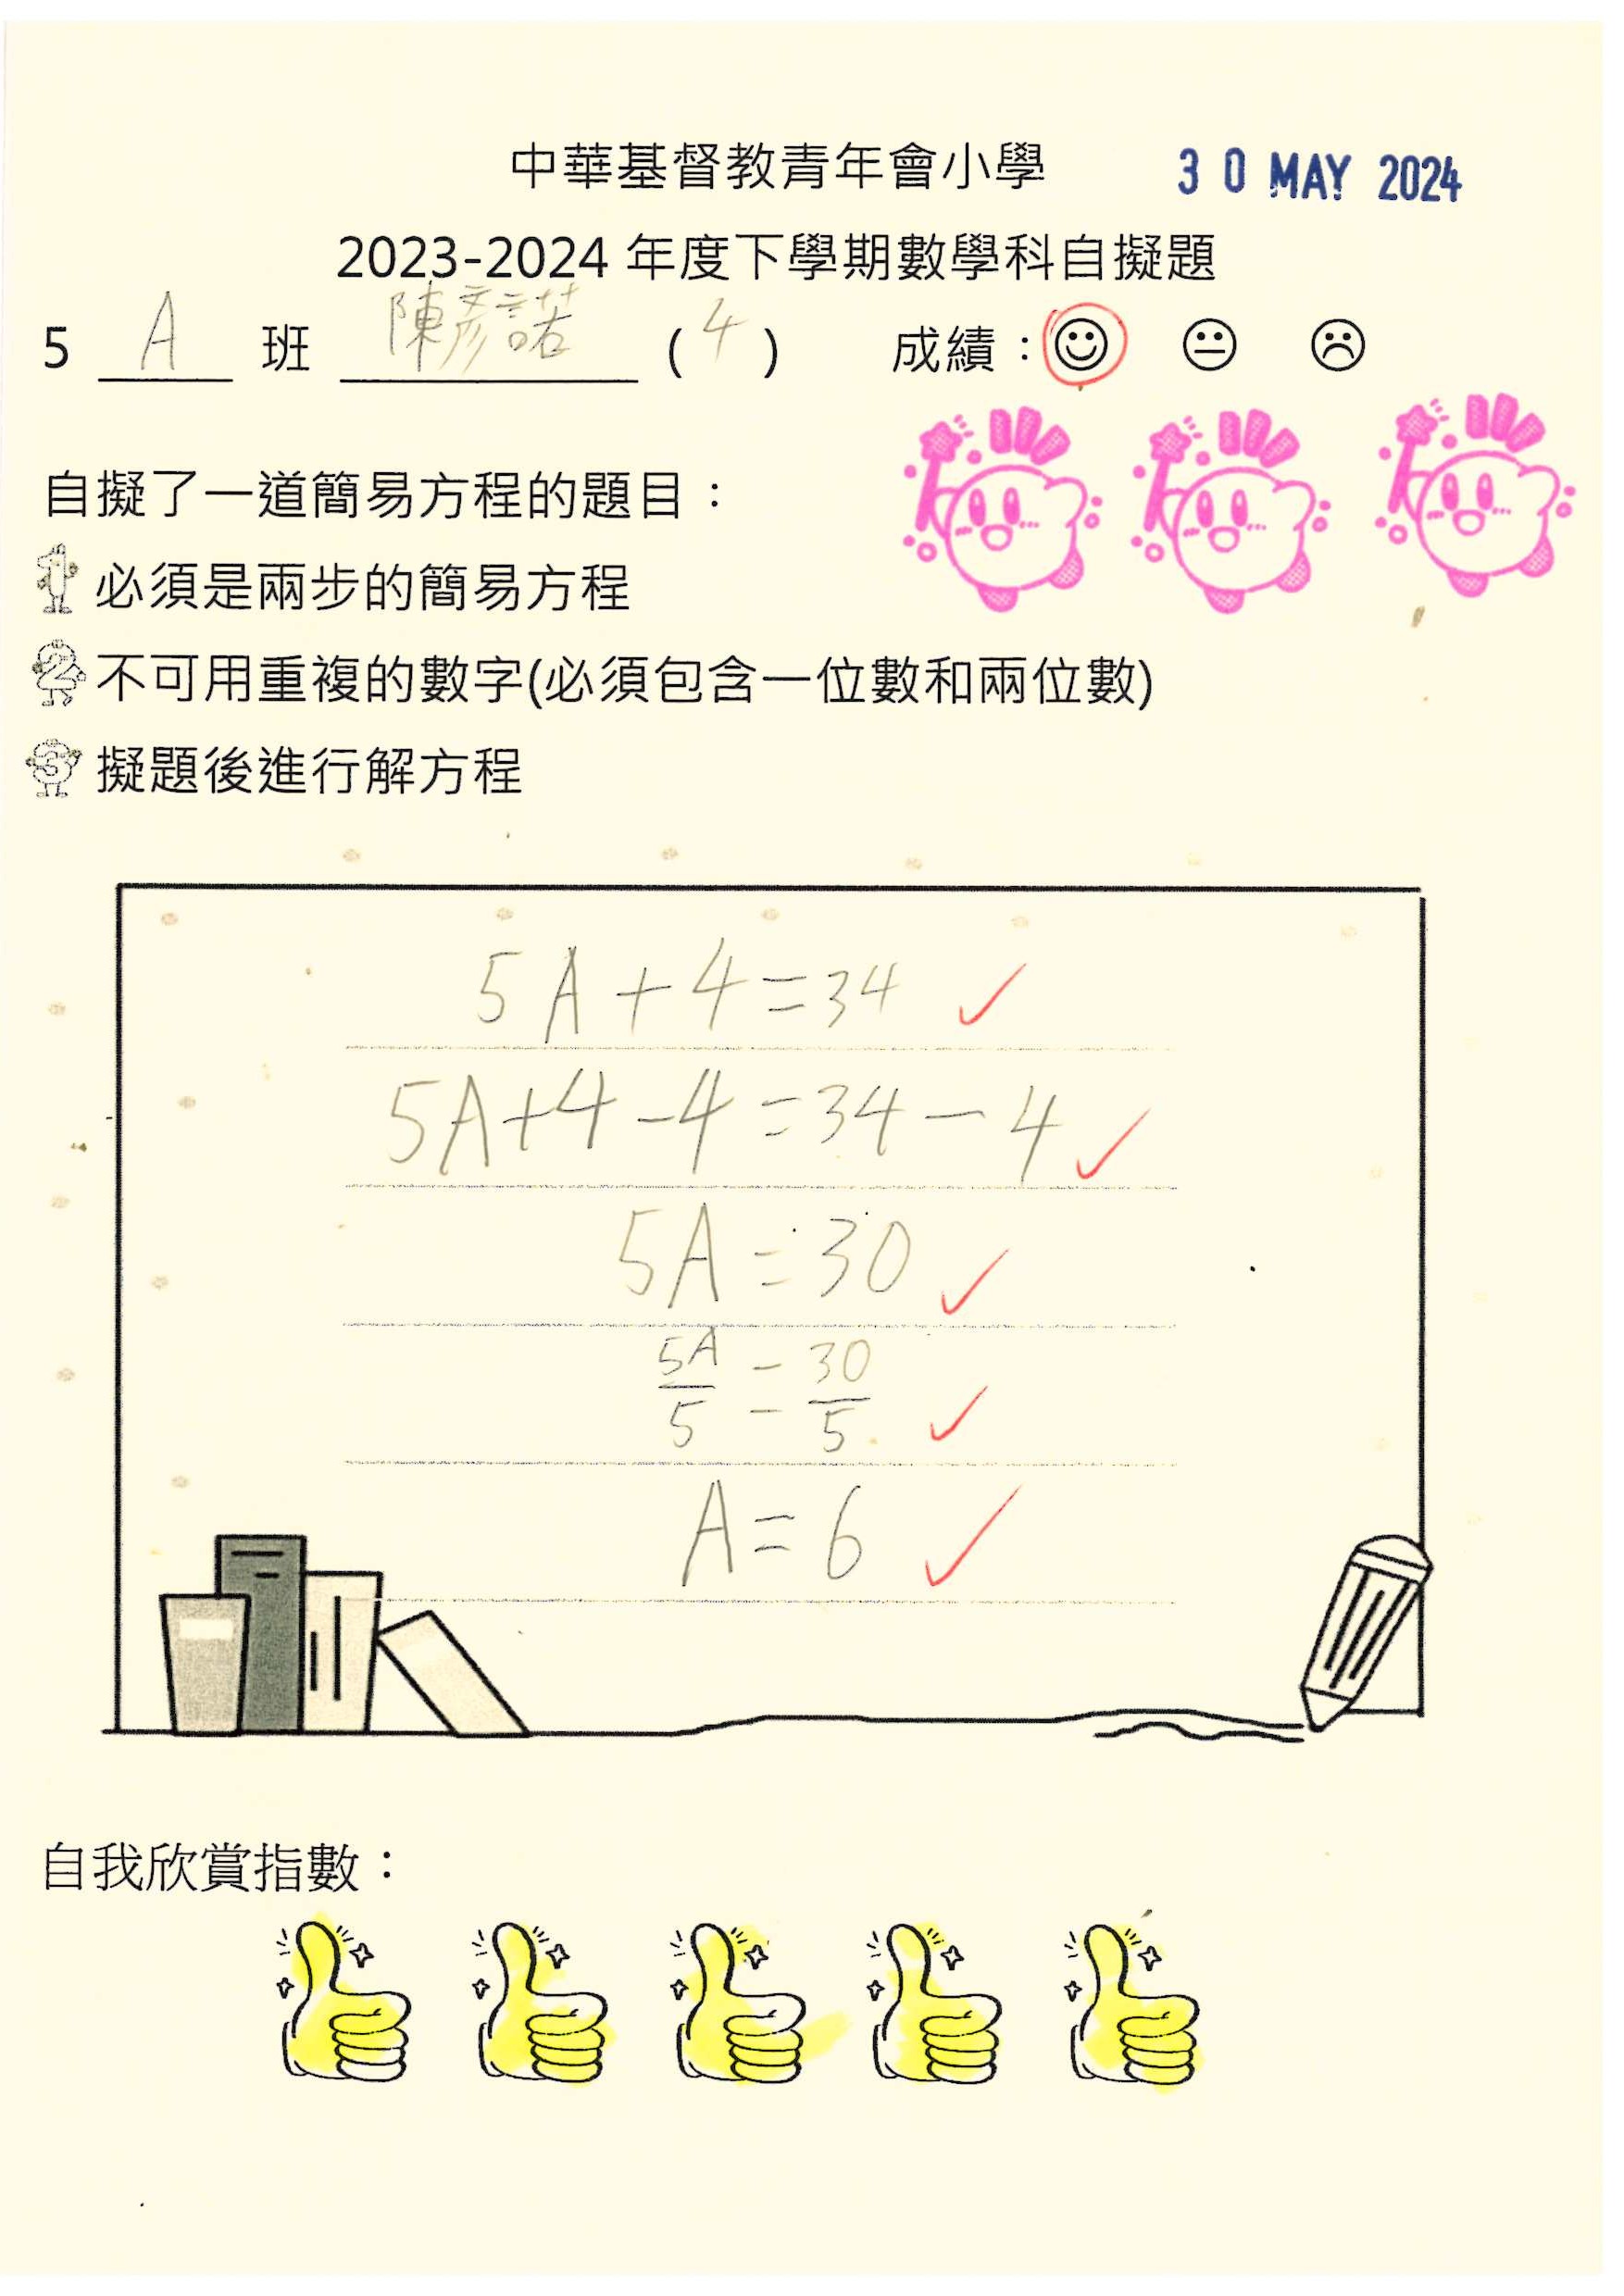 中華基督教青年會小學 30 MAY 2024
2023-2024 年度下學期數學科自擬題
5 A 班 陳彥諾 (4) 成績：
自擬了一道簡易方程的題目：
1 必須是兩步的簡易方程
2 不可用重複的數字(必須包含一位數和兩位數)
3 擬題後進行解方程
5A+4=34
5A+4-4=34-4
5A=30
5A/5=30/5
A=6
自我欣賞指數：